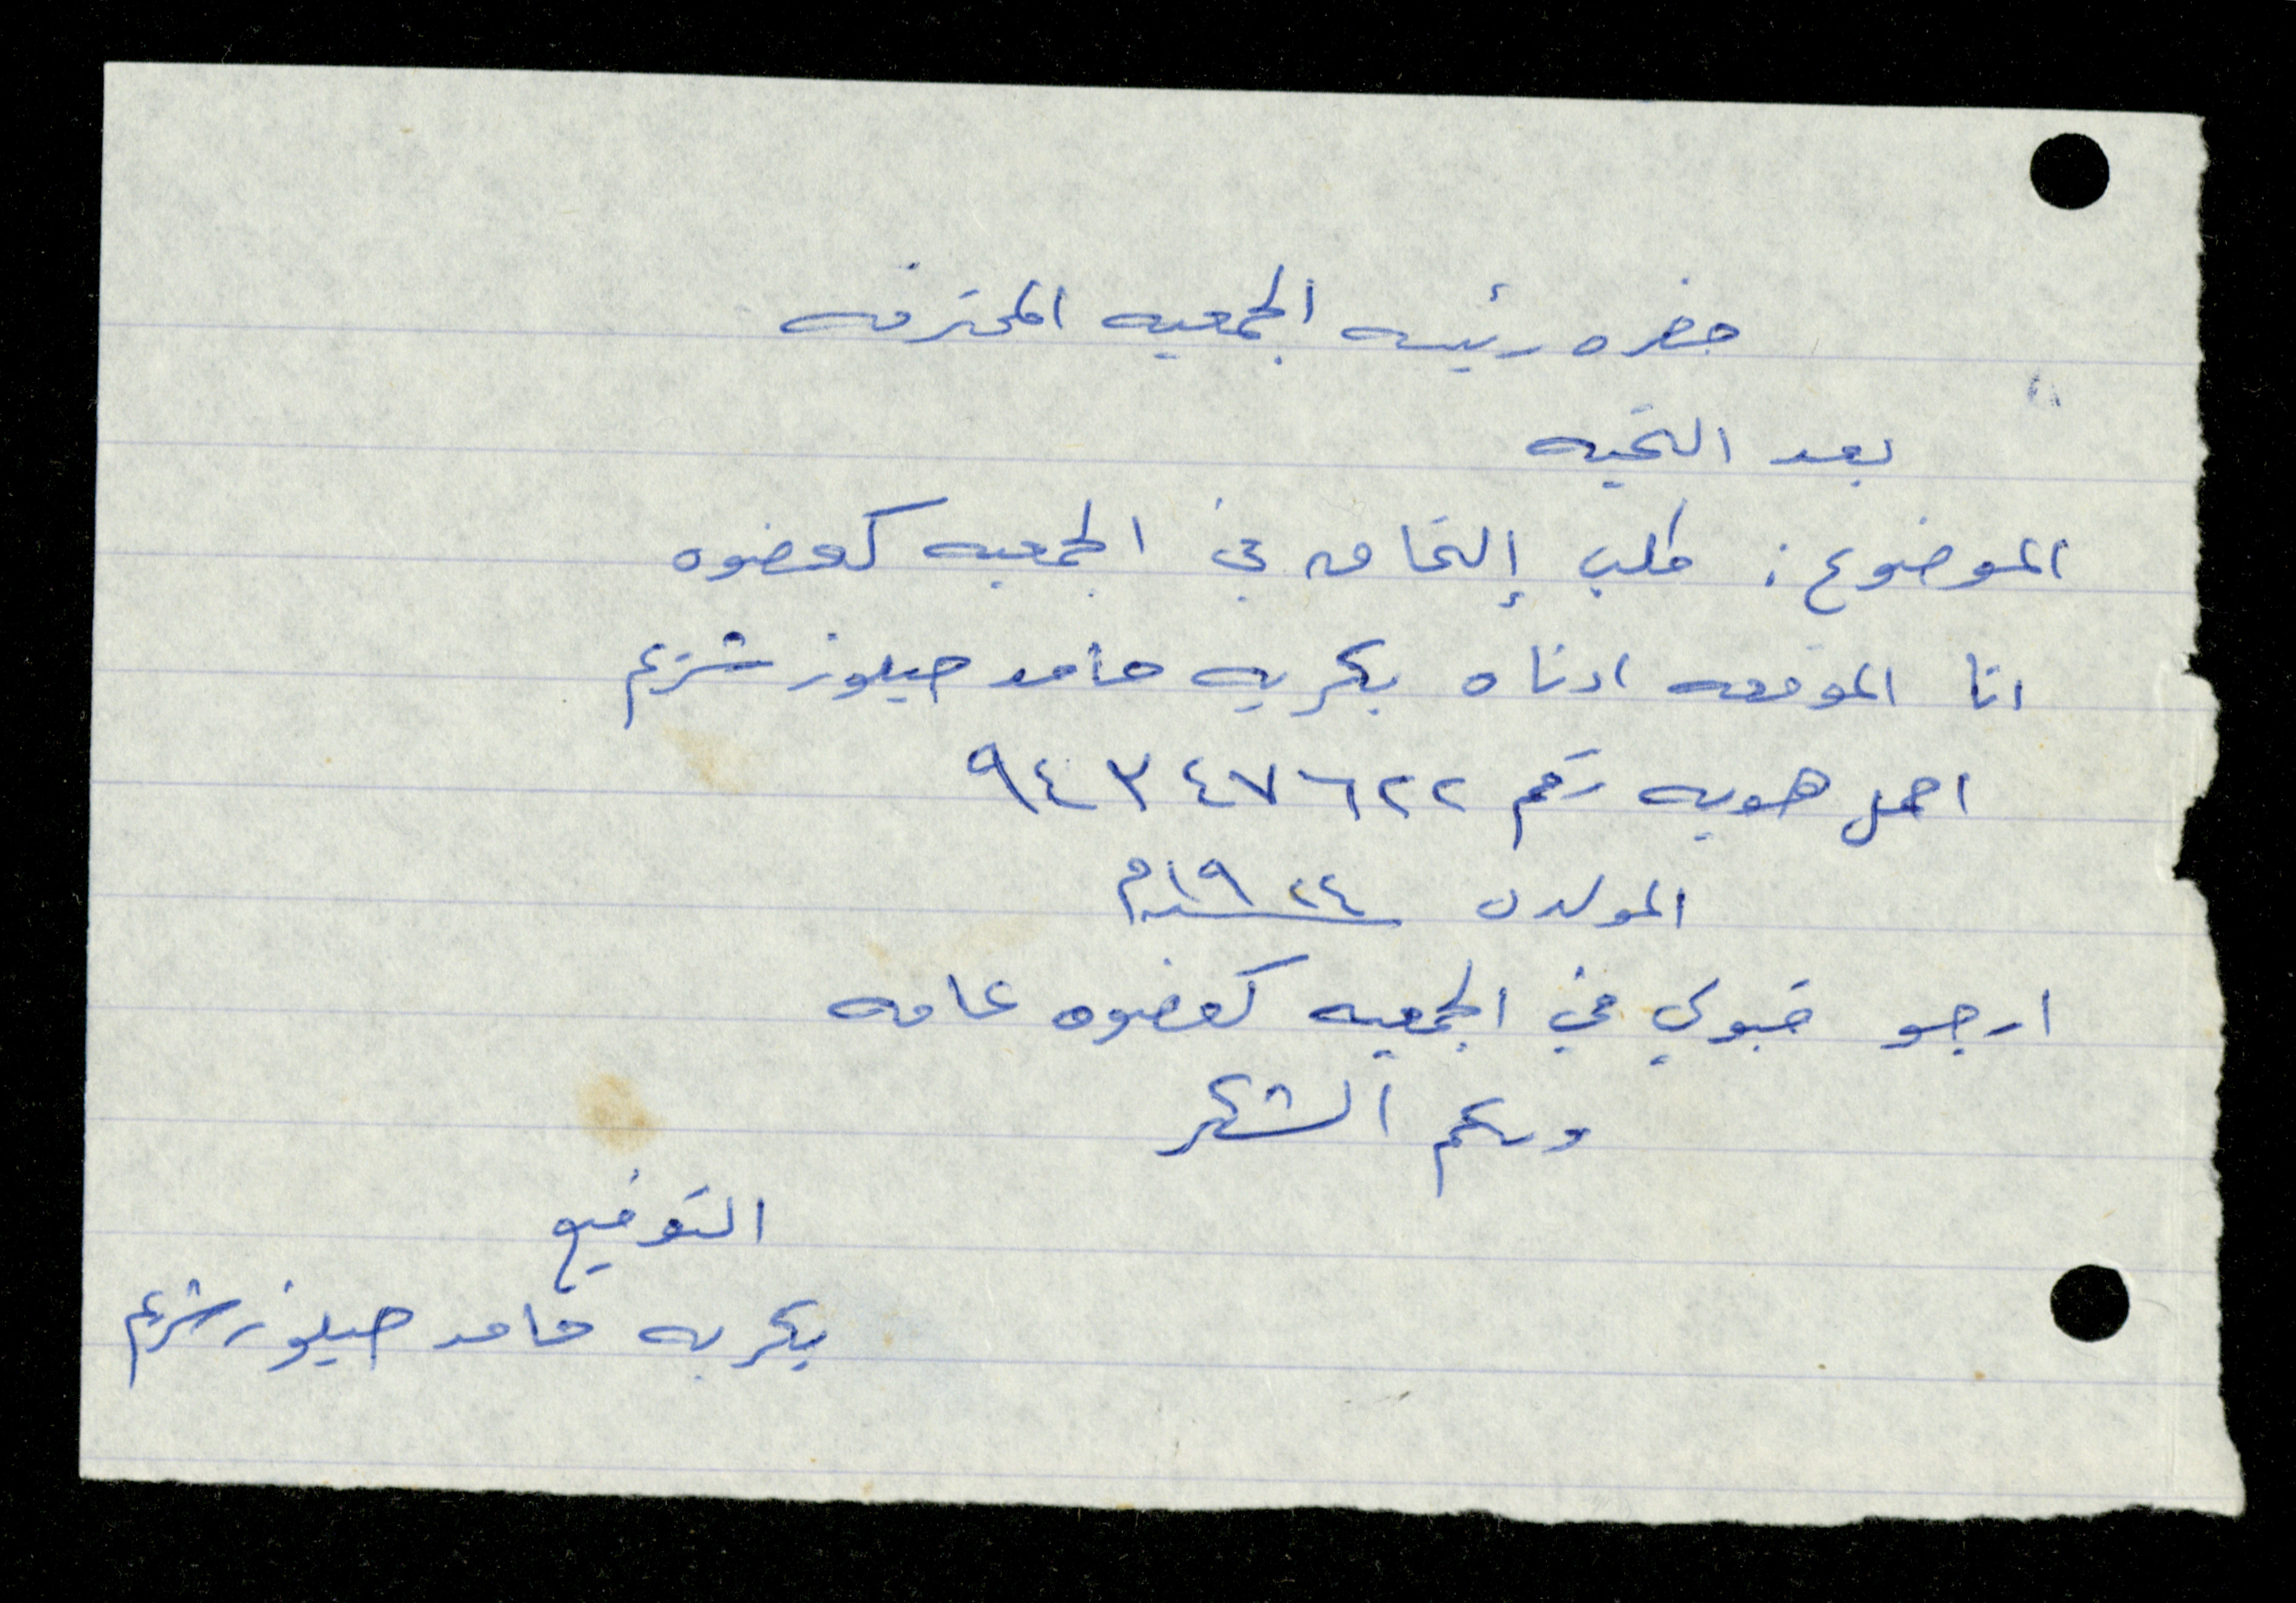 حضره رئيسه الجمعيه المحترمه
بعد التحيه
الموضوع : طلب إلتحاق في الجمعيه كعضوه
انا الموقعه ادناه بكريه حامد صيلوز شريم
احمل هويه رقم ٩٤٣٤٧٦٢٢
المولده ١٩٢٤م
ارجو قبولي في الجمعيه كعضوه عامه
ولكم الشكر
التوقيع
بكريه حامد صيلوز شريم